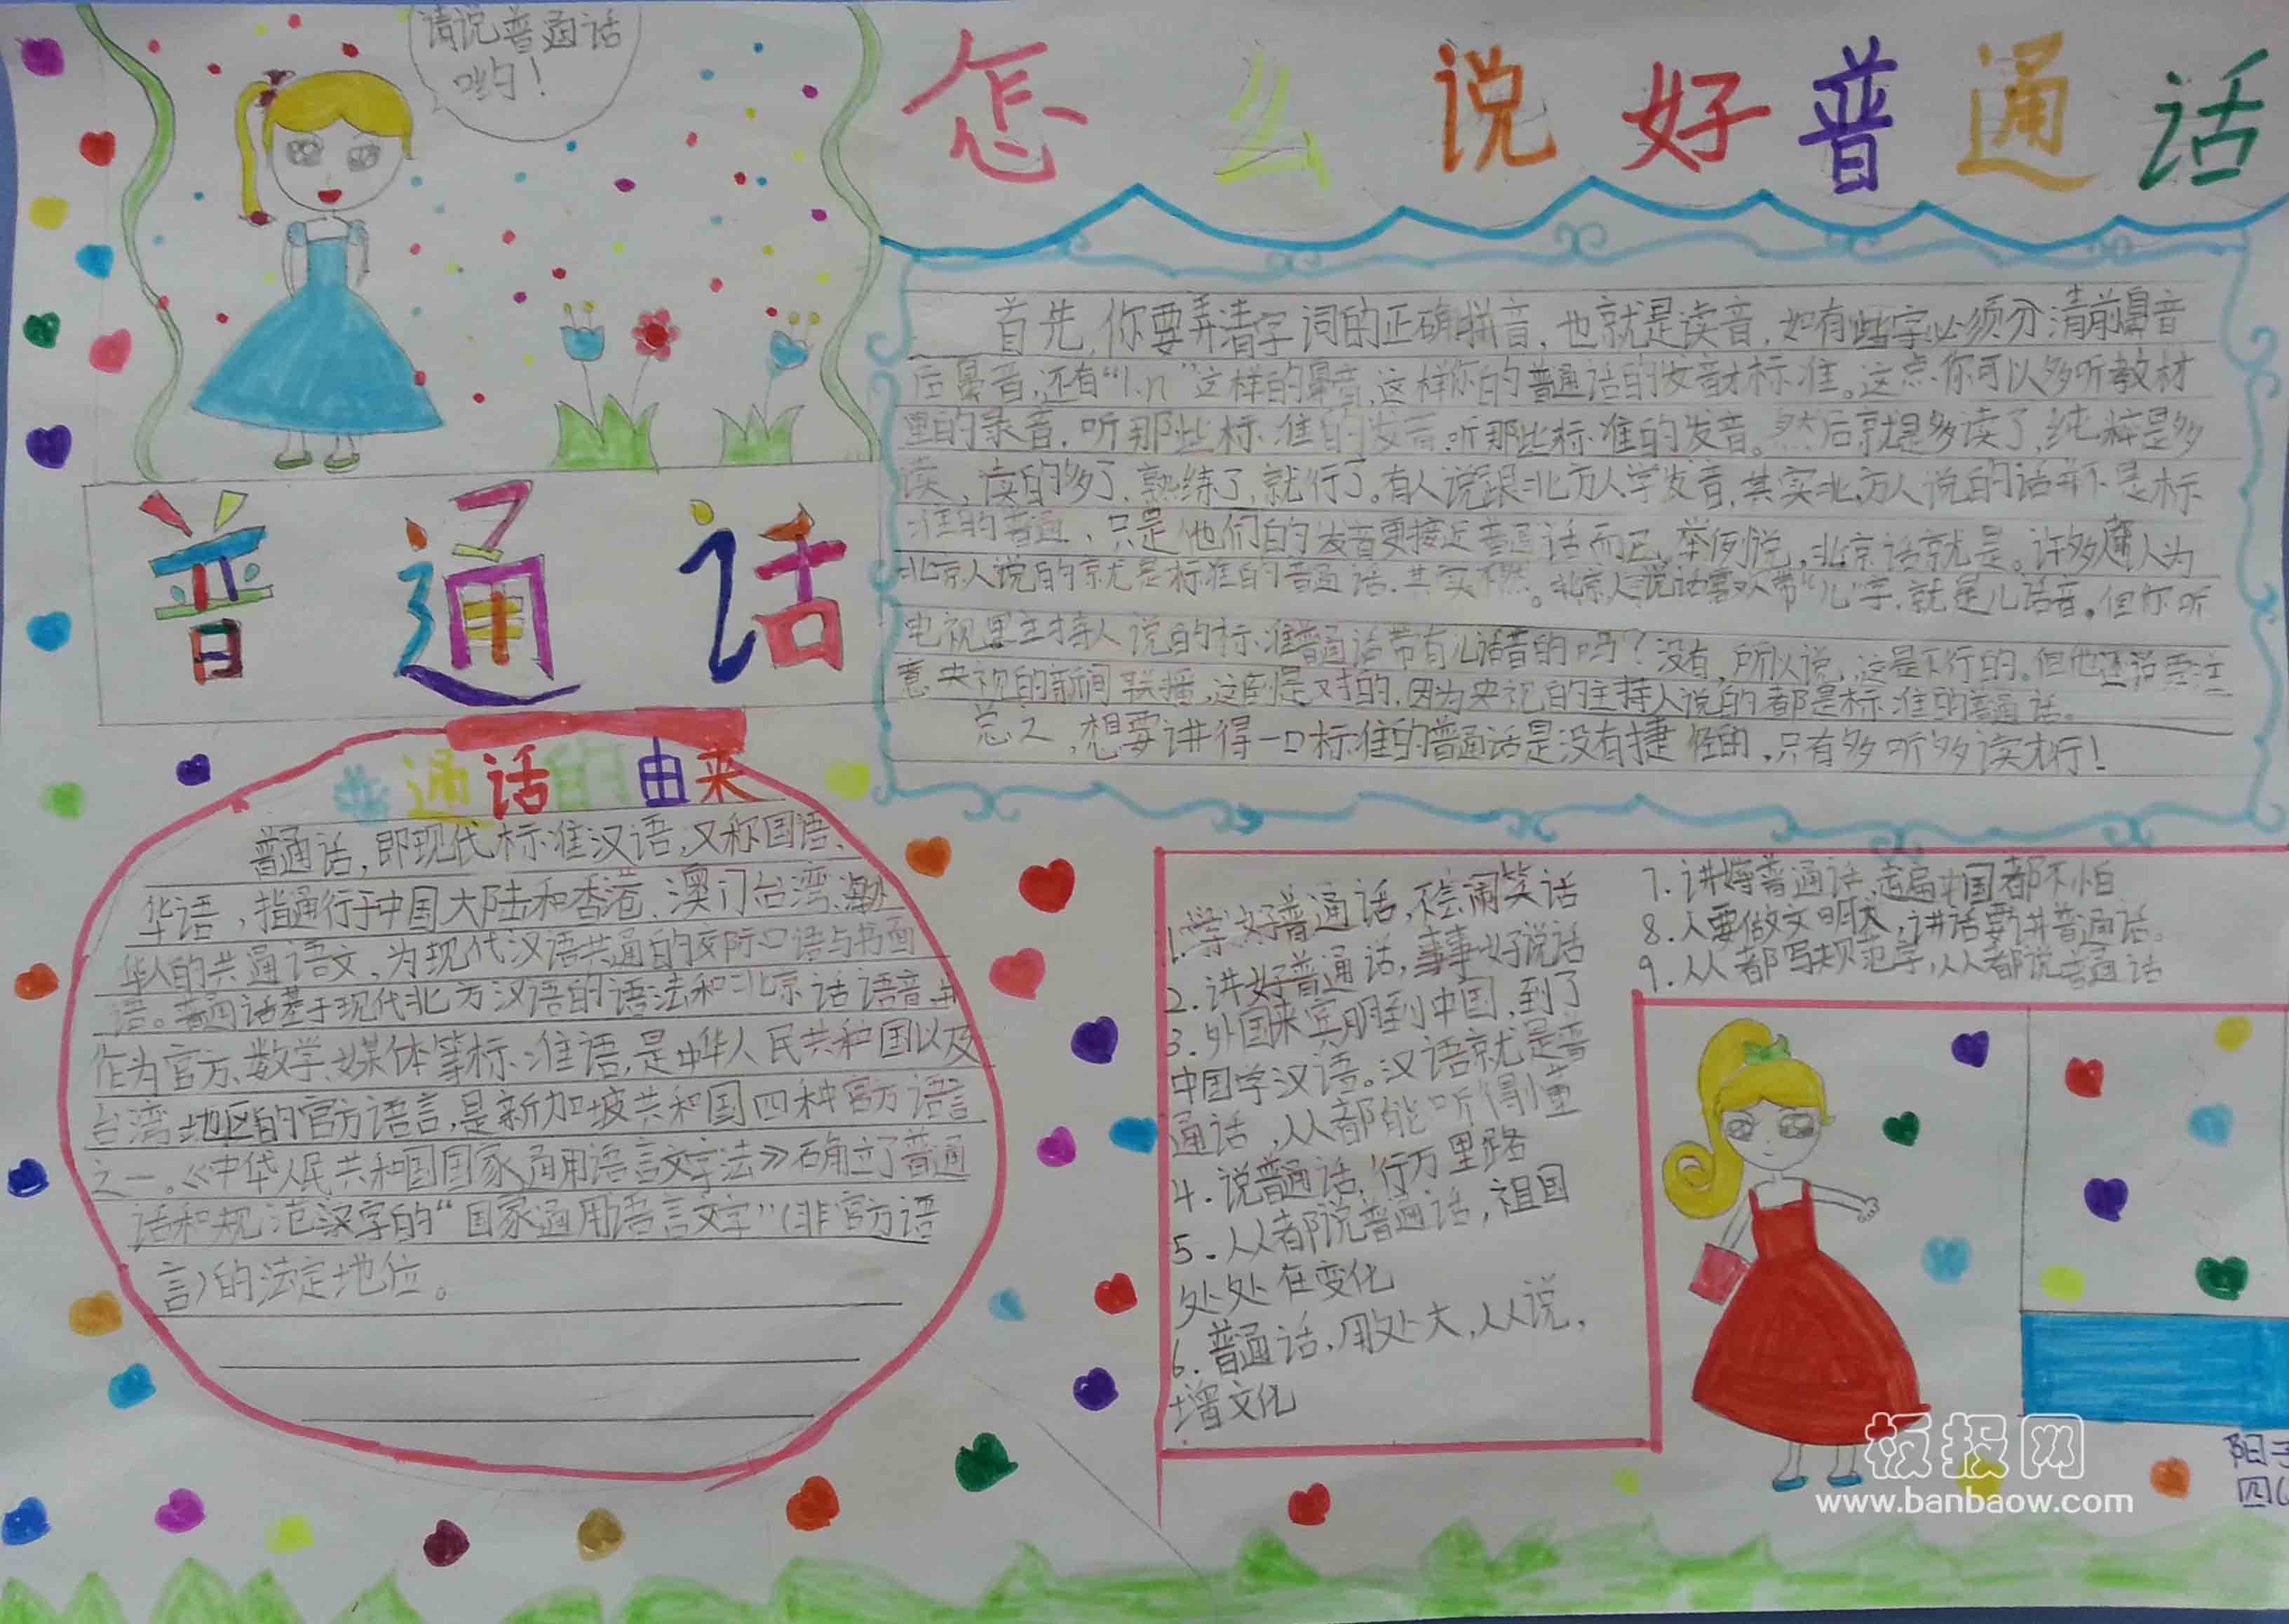 请说普通话
哟！
怎么说好普通话
首先，你要弄清字词的正确拼音，也就是读音，如有些字必须分清前鼻音
后鼻音，还有“l、n”这样的鼻音，这样你的普通话的发音才标准。这点你可以多听教材
里的录音，听那些标准的发音，听那些标准的发音。然后就是多读了，纯粹是多
读，读的多了，熟练了，就行了。有人说跟北方人学发音，其实北方人说的话并不是标
准的普通，只是他们的发音更接近普通话而已，举例说，北京话就是。许多人为
北京人说的就是标准的普通话，其实不然。北京人说话喜欢带“儿”字，就是儿话音。但你听
电视里主持人说的标准普通话带有儿话音的吗？没有，所以说，这是不行的。但他还说要注
意央视的新闻联播，这倒是对的，因为央视的主持人说的都是标准的普通话。
总之，想要讲得一口标准的普通话是没有捷径的，只有多听多读才行！
普通话
普通话的由来
普通话，即现代标准汉语，又称国语、
华语，指通行于中国大陆和香港、澳门台湾、海外
华人的共通语文，为现代汉语共通的交际口语与书面
语。普通话基于现代北方汉语的语法和北京话语音，并
作为官方、教学、媒体等标准语，是中华人民共和国以及
台湾地区的官方语言，是新加坡共和国四种官方语言
之一。《中华人民共和国国家通用语言文字法》确立了普通
话和规范汉字的“国家通用语言文字”（非官方语
言）的法定地位。
1.学好普通话，不会闹笑话
2.讲好普通话，事事好说话
3.外国来宾朋到中国，到了
中国学汉语。汉语就是普
通话，人人都能听得懂
4.说普通话，行万里路
5.人人都说普通话，祖国
处处在变化
6.普通话，用处大，人人说，
增文化
7.讲好普通话，走遍中国都不怕
8.人要做文明人，讲话要讲普通话。
9.人人都写规范字，人人都说普通话
板报网
www.banbaow.com
阳
四(